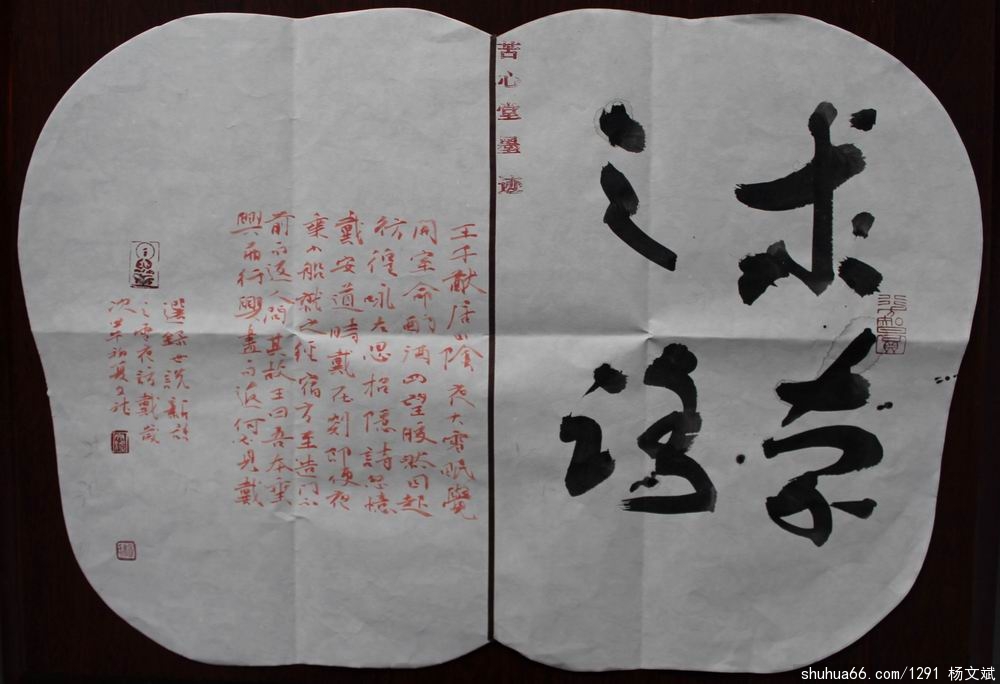 求索
之路
苦心堂墨迹
王子猷居山陰夜大雪眠覺
開室命酌酒四望皎然因起
彷徨咏左思招隱詩忽憶
戴安道時戴在剡即便夜
乘小船就之經宿方至造门不
前而返人問其故王曰吾本乘
興而行興盡而返何必見戴
選錄世說新語
之雪夜訪戴歲
次羊初夏文斌
shuhua66.com/1291 杨文斌